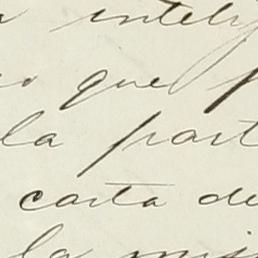 intelig
que p
la part
carta de
la mis